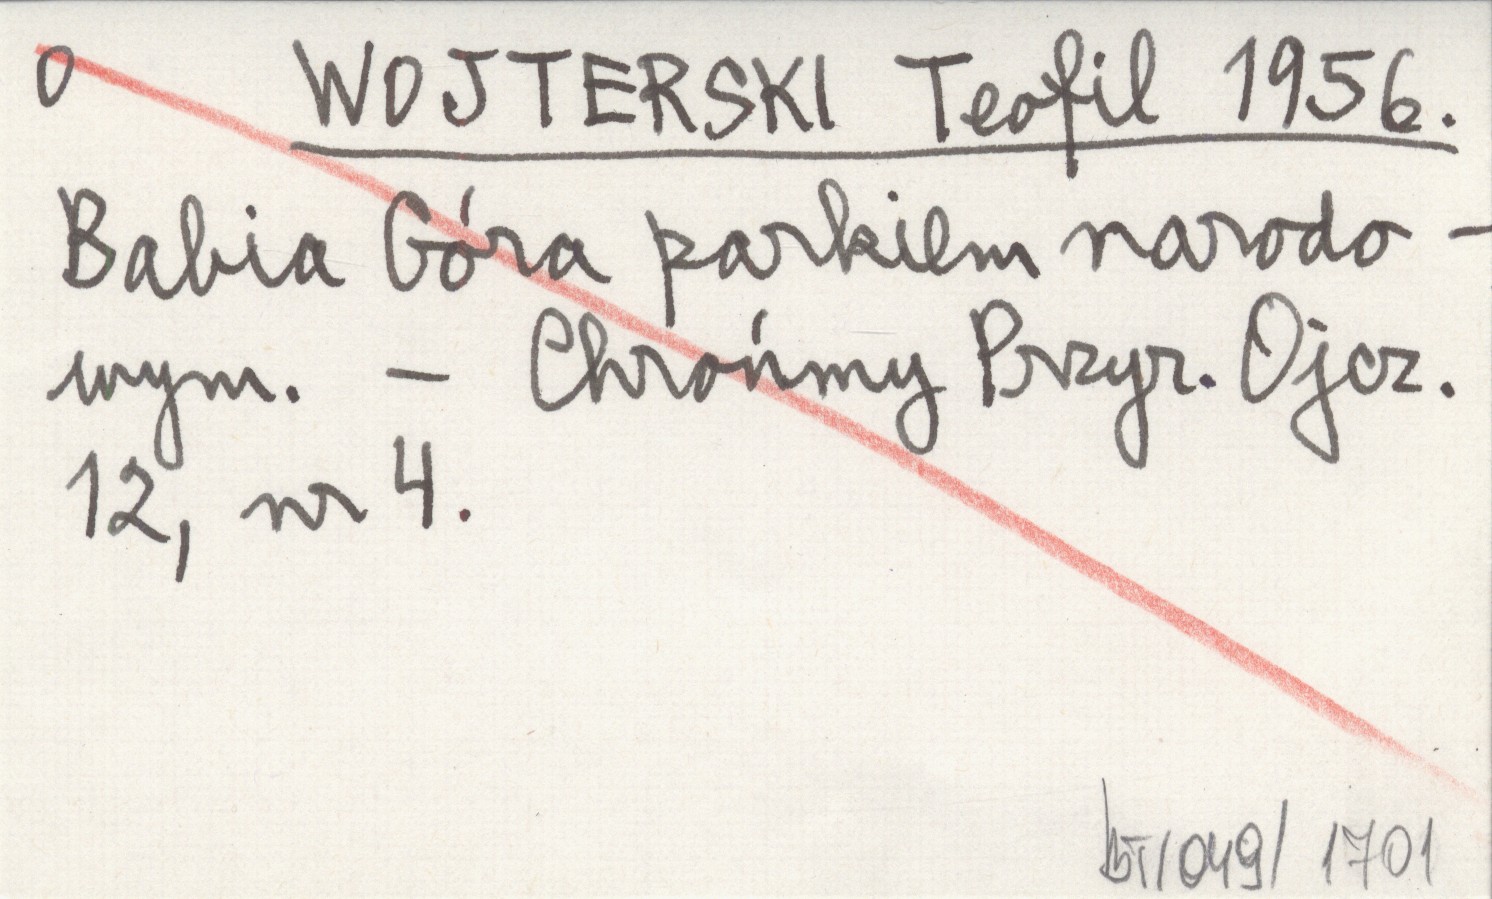 O WOJTERSKI Teofil 1956.
Babia Góra parkiem narodo-
wym. - Chrońmy Przyr. Ojcz.
12, nr 4.
BT/049/ 1701